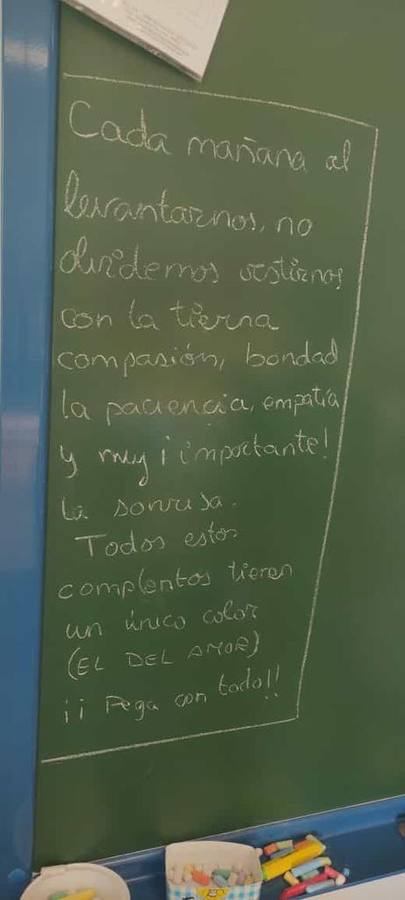 Cada mañana al
levantarnos, no
olvidemos vestirnos
con la tierna
compasión, bondad
la paciencia, empatía
y muy ¡importante!
la sonrisa.
Todos estos
complentos tienen
un único color
(EL DEL AMOR)
¡¡ Pega con todo!!